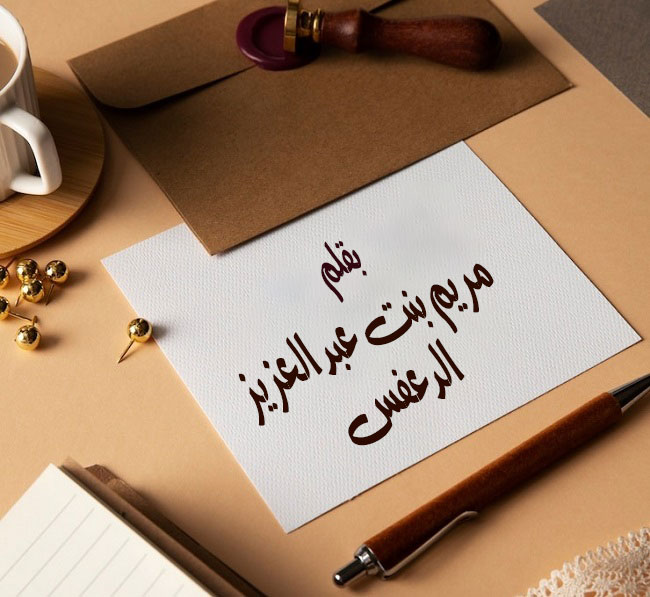 بقلم
مريم بنت عبد العزيز
الدعفس